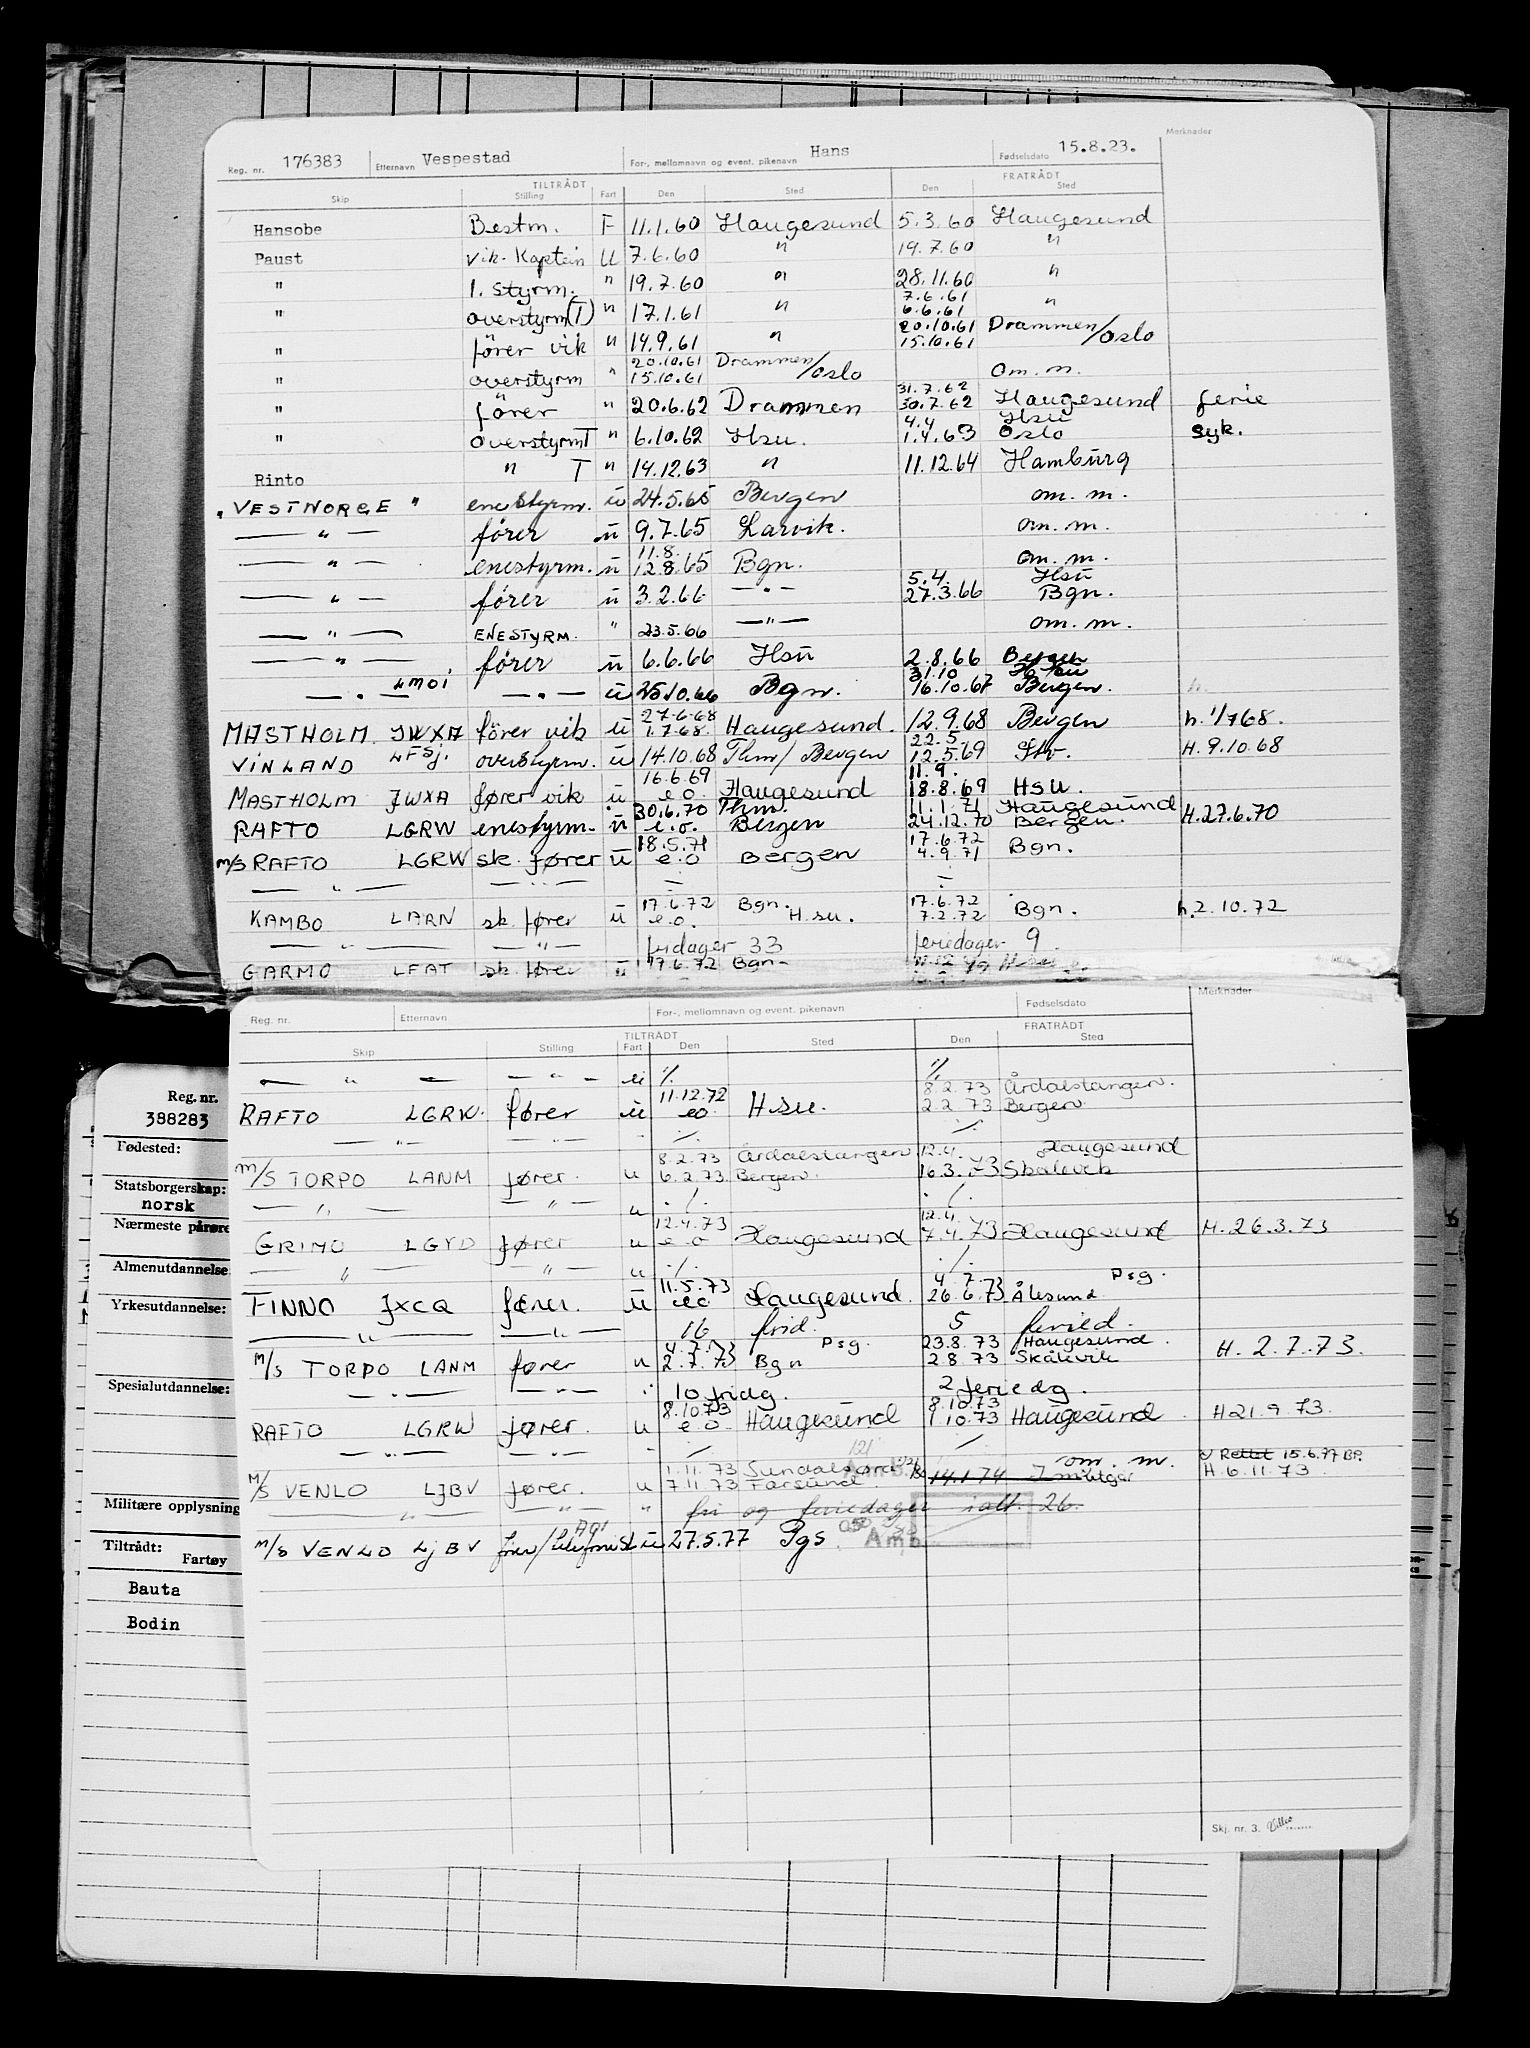 Reg. nr. 176383 Etternavn Vespestad For-, mellomnavn og event. pikenavn Hans Fødselsdato 15.8.23. Merknader
TILTRÅDT FRATRÅDT
Skip Stilling Fart Den Sted Den Sted
Hansobe Bestm. F 11.1.60 Haugesund 5.3.60 Haugesund
Paust vik. Kaptein U 7.6.60 " 19.7.60 "
" 1. styrm. " 19.7.60 " 28.11.60 "
7.6.61
" overstyrm(T) " 17.1.61 " 6.6.61 "
20.10.61
" fører vik " 14.9.61 " 15.10.61 Drammen/Oslo
20.10.61
" overstyrm " 15.10.61 Drammen/Oslo om. m.
31.7.62
" fører " 20.6.62 Drammen 30.7.62 Haugesund ferie
4.4 Hsu
" overstyrm T " 6.10.62 Hsu. 1.4.63 Oslo syk.
Rinto " T " 14.12.63 " 11.12.64 Hamburg
"VESTNORGE" enestyrm. u 24.5.65 Bergen om. m.
— " — fører u 9.7.65 Larvik. om. m.
11.8.
— " — enestyrm. u 12.8.65 Bgn. om. m.
5.4. Hsu
— " — fører u 3.2.66 — " — 27.3.66 Bgn.
— " — ENESTYRM. " 23.5.66 — " — om. m.
— " — fører u 6.6.66 Hsu 2.8.66 Bergen
31.10
— " — LMOI — " — u 25.10.66 Bgn. 16.10.67 Bergen.
27-6-68
MASTHOLM JWXA fører vik u 1.7.68. Haugesund. 12.9.68 Bergen h. 1/768.
22.5
VINLAND LFSJ. overstyrm. u 14.10.68 Thm/Bergen 12.5.69 H. 9.10.68
16.6.69 11.9.
MASTHOLM JWXA fører vik u e.o. Haugesund 18.8.69 HSU.
30.6.70 Thm. 11.1.71 Haugesund
RAFTO LGRW enestyrm. u e.o. Bergen 24.12.70 Bergen. H.27.6.70
18.5.71 17.6.72
M/S RAFTO LGRW sk. fører u e.o Bergen 4.9.71 Bgn.
— " — — " —
17.6.72 Bgn. 17.6.72
KAMBO LARN sk. fører u e.o. H.su. 7.2.72 Bgn. h.2.10.72
— " — — " — fridager 33 feriedager 9.
GARMO LFAT sk. fører u 17.6.72 Bgn-
Reg. nr. Etternavn For-, mellomnavn og event. pikenavn Fødselsdato Merknader
TILTRÅDT FRATRÅDT
Skip Stilling Fart Den Sted Den Sted
— " — — " — u ./. ./.
11.12.72 8.2.73 Årdalstangen.
RAFTO LGRW. fører u eo H.su. 2.2.73 Bergen
— " — — " — ./. ./.
8.2.73 Årdalstangen 12.4. Haugesund
M/S TORPO LANM fører. u 6.2.73 Bergen. 16.3.73 Skålevik
— " — — " — u ./. ./.
12.4.73 12.4.
GRIMO LGYD fører u e o Haugesund 7.4.73 Haugesund H.26.3.73
— " — — " — u ./. ./.
11.5.73 4.7.73 Psg.
FINNO JXCQ fører. u eo Haugesund. 26.6.73 Ålesund
— " — — " — 16 frid. 5 feried.
4.7.73 Psg. 23.8.73 Haugesund.
M/S TORPO LANM fører u 2.7.73 Bgn 2.8.73 Skålevik H. 2.7.73.
— " — 10 fridg. 2 feriedg.
8.10.73 8.10.73
RAFTO LGRW fører. u e.o- Haugesund 1.10.73 Haugesund. H21.9.73.
— " — — " — ./. ./.
1.11.73 Sundalsøra om. m. Rettet 15.6.77 BP.
M/S VENLO LJBV fører. u 7.11.73 Farsund. 14.1.74 H.6.11.73.
— " — — " — " fri og feriedager ialt. 26.
M/S VENLO LJBV fører/telefonist u 27.5.77 Pgs. Amb.
Skj. nr. 3.
Reg. nr.
388283
Fødested:
Statsborgerskap:
norsk
Nærmeste pårøre
Almenutdannelse
Yrkesutdannelse:
Spesialutdannelse:
Militære opplysning
Tiltrådt:
Fartøy
Bauta
Bodin